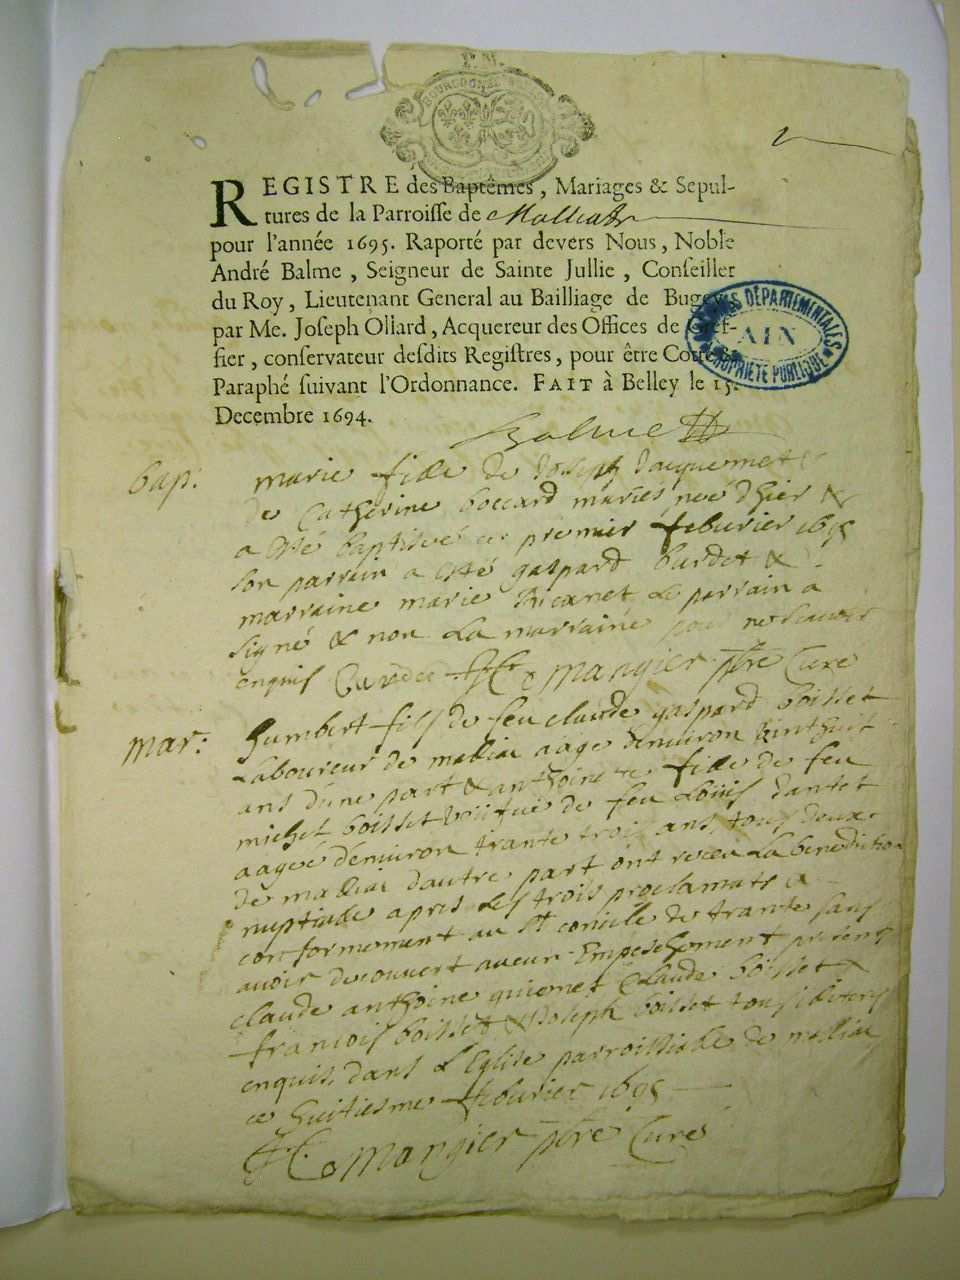 BOURGOGNE
2
REGISTRE des Baptêmes, Mariages & Sepul-
tures de la Parroisse de Malliat
pour l'année 1695. Raporté par devers Nous, Noble
André Balme, Seigneur de Sainte Jullie, Conseiller
du Roy, Lieutenant General au Bailliage de Bugey
par Me. Joseph Ollard, Acquereur des Offices de Gref-
fier, conservateur desdits Registres, pour être Cotté &
Paraphé suivant l'Ordonnance. FAIT à Belley le 15.
Decembre 1694.
ARCHIVES DÉPARTEMENTALES
AIN
PROPRIÉTÉ PUBLIQUE
Balme
bap: marie fille de Joseph Jacquemet &
de Catherine boccard mariés née d'hier &
a esté baptisée ce premier feburier 1695
son parrain a esté gaspard burdet &
marraine marie le parrain a
signé & non la marraine pour ne scavoir
enquis burdet mangier pbre Curé
mar: humbert fils de feu claude gaspard boisset
laboureur de malliat aagé denuiron vint huit
ans d'une part & anthoinette fille de feu
michel boisset veufue de feu Louis dantet
aagée denuiron trante trois ans, tous deux
de malliat dautre part ont receu la benediction
nuptiale apres les trois proclamats &
conformement au st concile de trante sans
avoir decouvert aucun empeschement presents
claude anthoine guiomet Claude boisset
francois boisset & Joseph boisset tous illiterés
enquis, dans l'Eglise parroissialle de malliat
ce huitiesme feburier 1695
mangier pbre Curé